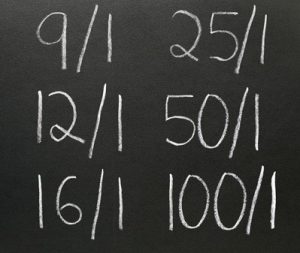 9/1 25/1
12/1 50/1
16/1 100/1